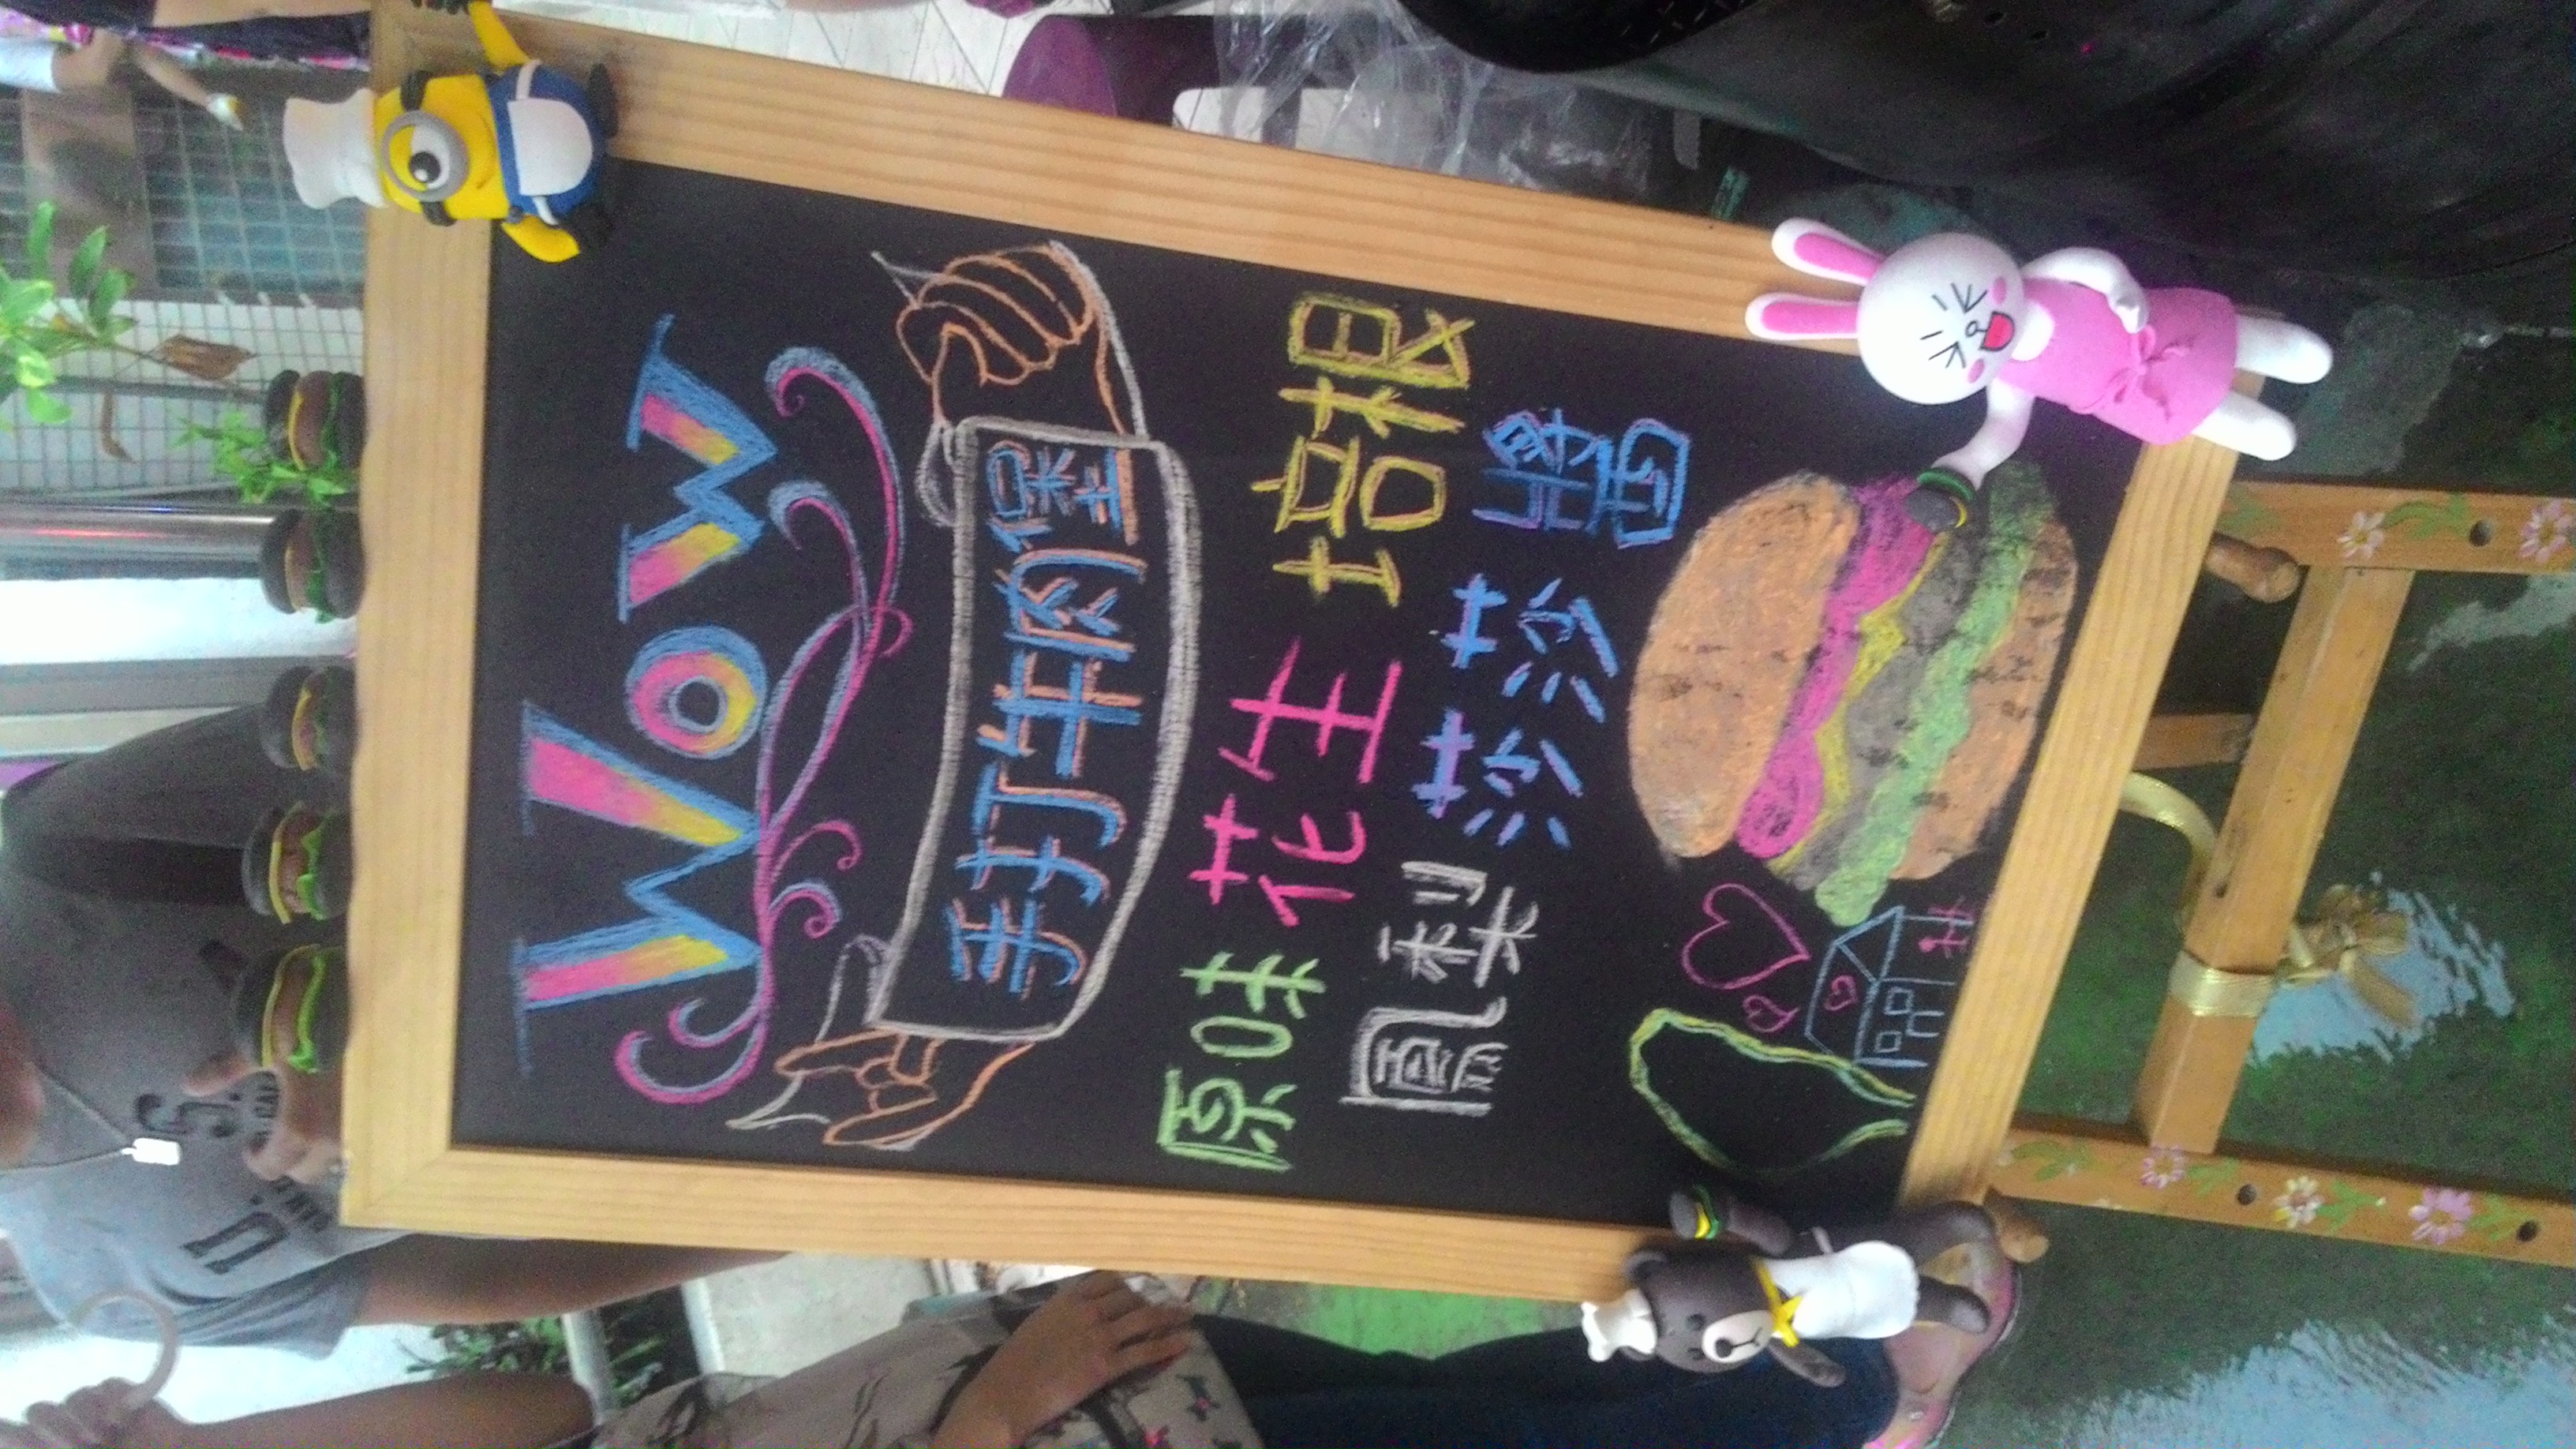 U.S.
Wow
手打牛肉堡
原味 花生 培根
鳳梨 莎莎醬